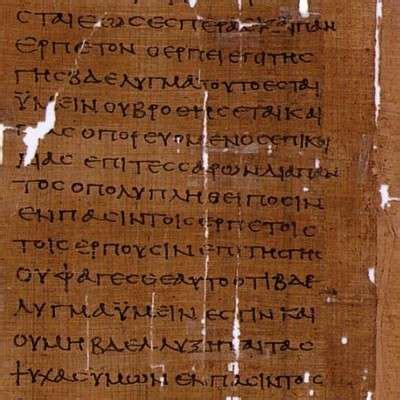 ϹΤΑΙ ΕΩϹ ΕϹΠΕΡΑϹ ΚΑΙ ΠΑΝ
ΕΡΠΕΤΟΝ Ο ΕΡΠΕΙ ΕΠΙ ΤΗϹ
ΓΗϹ ΒΔΕΛΥΓΜΑ ΤΟΥΤΟ ΕϹΤΑΙ
ΫΜΕΙΝ ΟΥ ΒΡΟΘΗϹΕΤΑΙ ΚΑΙ
ΠΑϹ Ο ΠΟΡΕΥΟΜΕΝΟϹ ΕΠΙ ΚΟΙ
ΛΙΑϹ ΕΠΙ ΤΕϹϹΑΡΩΝ ΔΙΑ ΠΑΝ
ΤΟϹ Ο ΠΟΛΥΠΛΗΘΕΙ ΠΟϹΙΝ
ΕΝ ΠΑϹΙΝ ΤΟΙϹ ΕΡΠΕΤΟΙϹ
ΤΟΙϹ ΕΡΠΟΥϹΙΝ ΕΠΙ ΤΗϹ ΓΗϹ
ΟΥ ΦΑΓΕϹΘΕ ΑΥΤΟ ΟΤΙ ΒΔΕ
ΛΥΓΜΑ ΫΜΕΙΝ ΕϹΤΙΝ ΚΑΙ
ΟΥ ΜΗ ΒΔΕΛΛΥΞΗΤΑΙ ΤΑϹ
ΨΥΧΑϹ ΥΜΩΝ ΕΝ ΠΑϹΙΝ ΤΟΙϹ